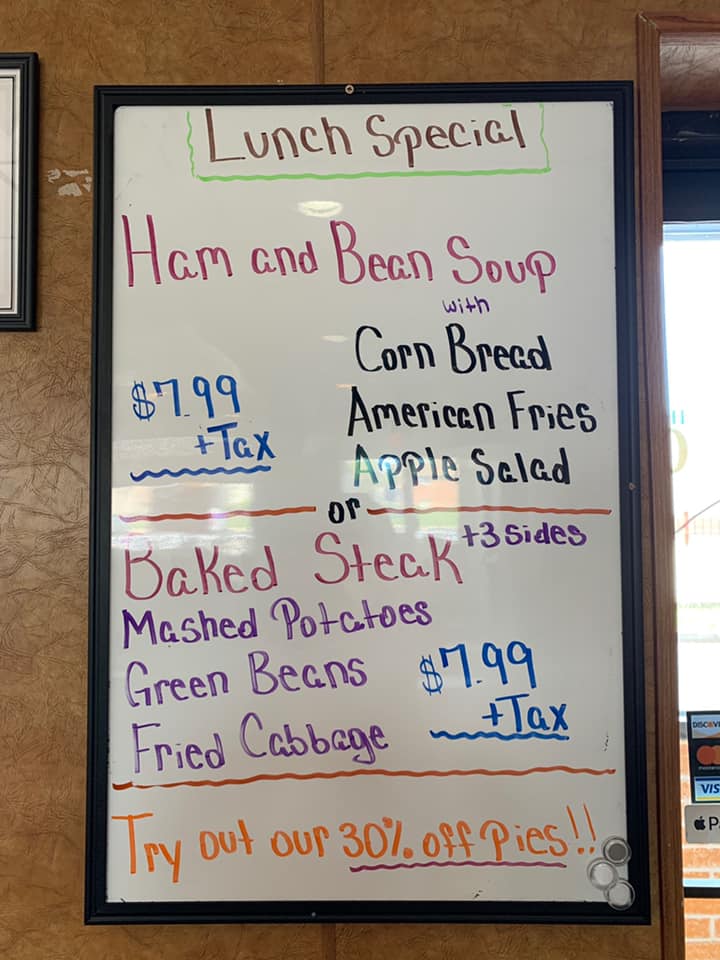 Lunch Special
Ham and Bean Soup
with
Corn Bread
$7.99
+Tax
American Fries
Apple Salad
or
Baked Steak +3 Sides
Mashed Potatoes
Green Beans
$7.99
+Tax
Fried Cabbage
Try out our 30% off Pies!!
DISCOV
VIS
P